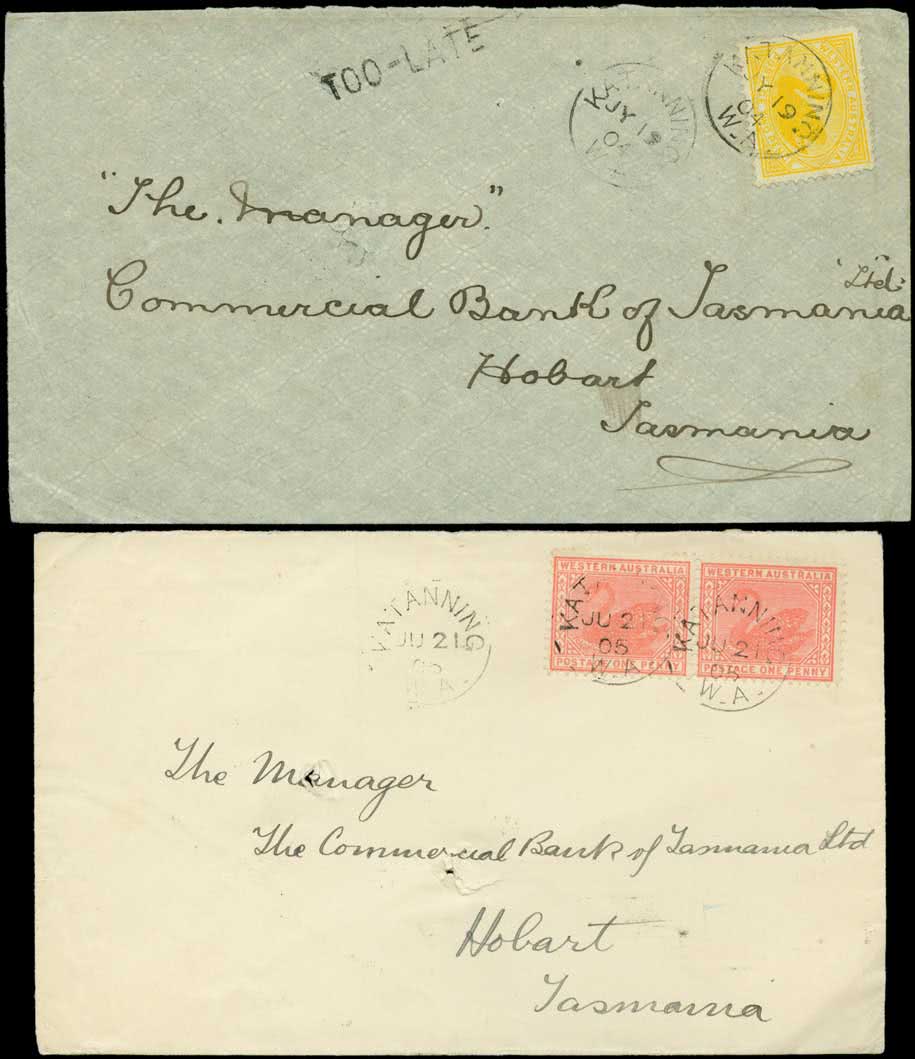 TOO-LATE
KATANNING
JY 19
04
W.A
KATANNING
JY 19
04
W.A
WESTERN AUSTRALIA
"The. Manager."
Commercial Bank of Tasmania
"Ltd."
Hobart
Tasmania
KATANNING
JU 21
05
W.A
WESTERN AUSTRALIA
KATANNING
JU 21
05
W.A
POSTAGE ONE PENNY
WESTERN AUSTRALIA
KATANNING
JU 21
05
W.A
POSTAGE ONE PENNY
The Manager
The Commercial Bank of Tasmania Ltd
Hobart
Tasmania